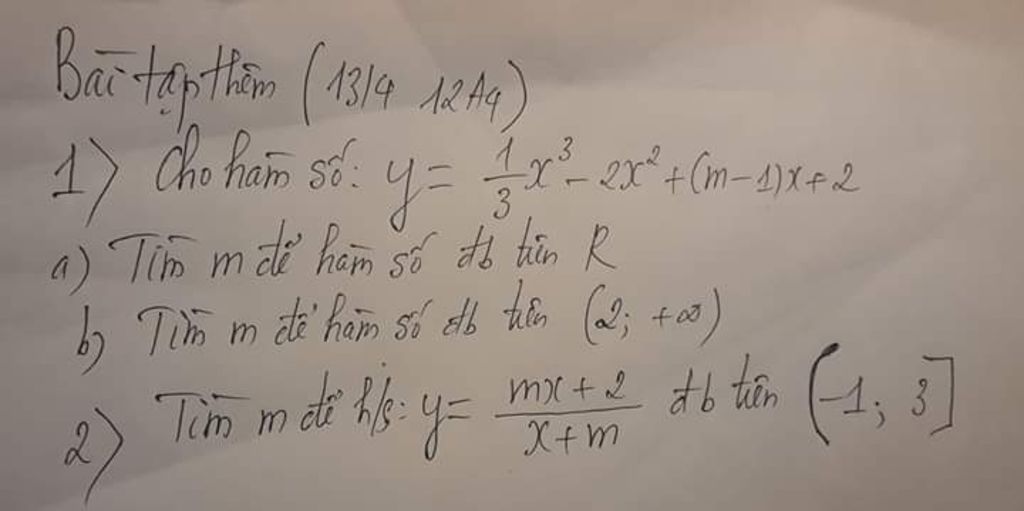 Bài tập thêm (13/4 12A4)
1) Cho hàm số: y = 1/3 x³ - 2x² + (m-1)x + 2
a) Tìm m để hàm số đb trên R
b) Tìm m để hàm số đb trên (2; +∞)
2) Tìm m để h/s: y = mx + 2 / x + m đb trên (-1; 3]